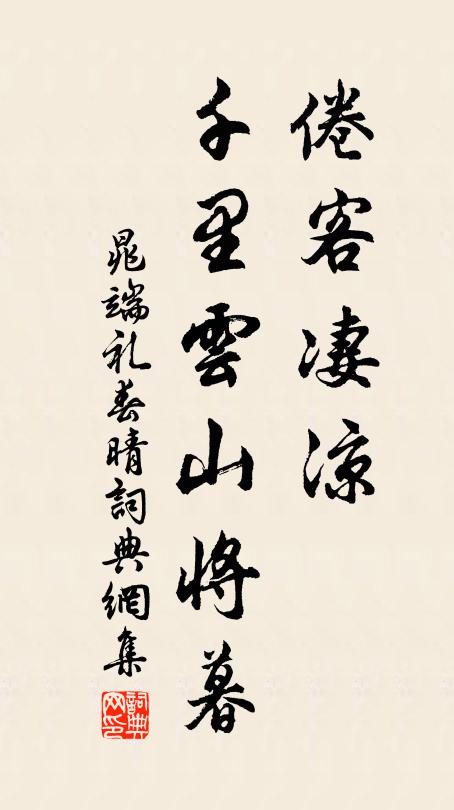 倦客凄涼
千里雲山將暮
晁端礼春晴詞典網集
詞典网印